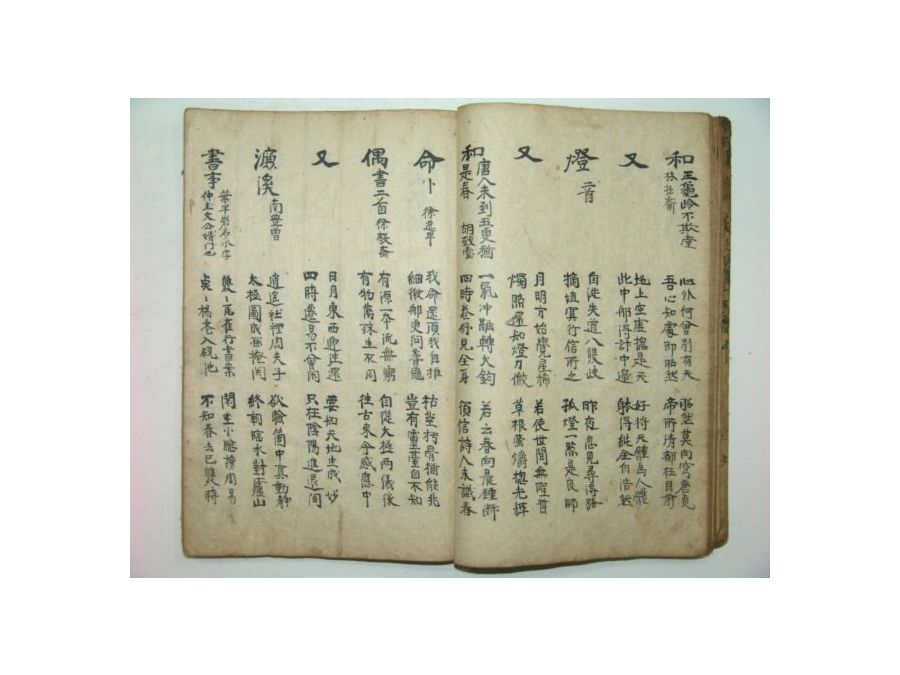 和王龜岭不欺堂
林拙齋
心外何曾別有天
吾心知處即昭然
昭然莫向穹蒼覓
帝所清都在目前
又
地上空虛摠是天
此中那得計中邊
好將天體爲人體
躰得純全自浩然
燈二首
自從失道入多岐
擿埴冥行信所之
昨夜忽見尋得路
孤燈一點是良師
又
月明方始覺星稀
燭照還知燈力微
若使世間無 哲
草根螢爝摠光輝
和唐人未到五更猶
是春 胡致堂
一氣冲融轉大鈞
四時卷舒見全身
若云春向晨鍾斷
須信詩人未識春
命卜 徐逸平
我命還須我自推
細微那更問蓍龜
枯莖朽骨猶能兆
豈有靈臺自不知
偶書二首 徐毅齋
有源一本流無窮
有物萬殊生不同
自從太極兩儀後
往古來今感應中
又
日月東西迎往還
四時遷易不曾閒
要知天地生成妙
只在陰陽進退間
濂溪 南豊曽
逍遙社裡周夫子
太極圖成畫掩関
欲驗箇中真動静
終朝臨水對廬山
書事 葉平岩名采字
仲圭文公婿門也
雙〻瓦雀行書案
點〻楊花入硯池
閒坐小牕讀周易
不知春去已幾時